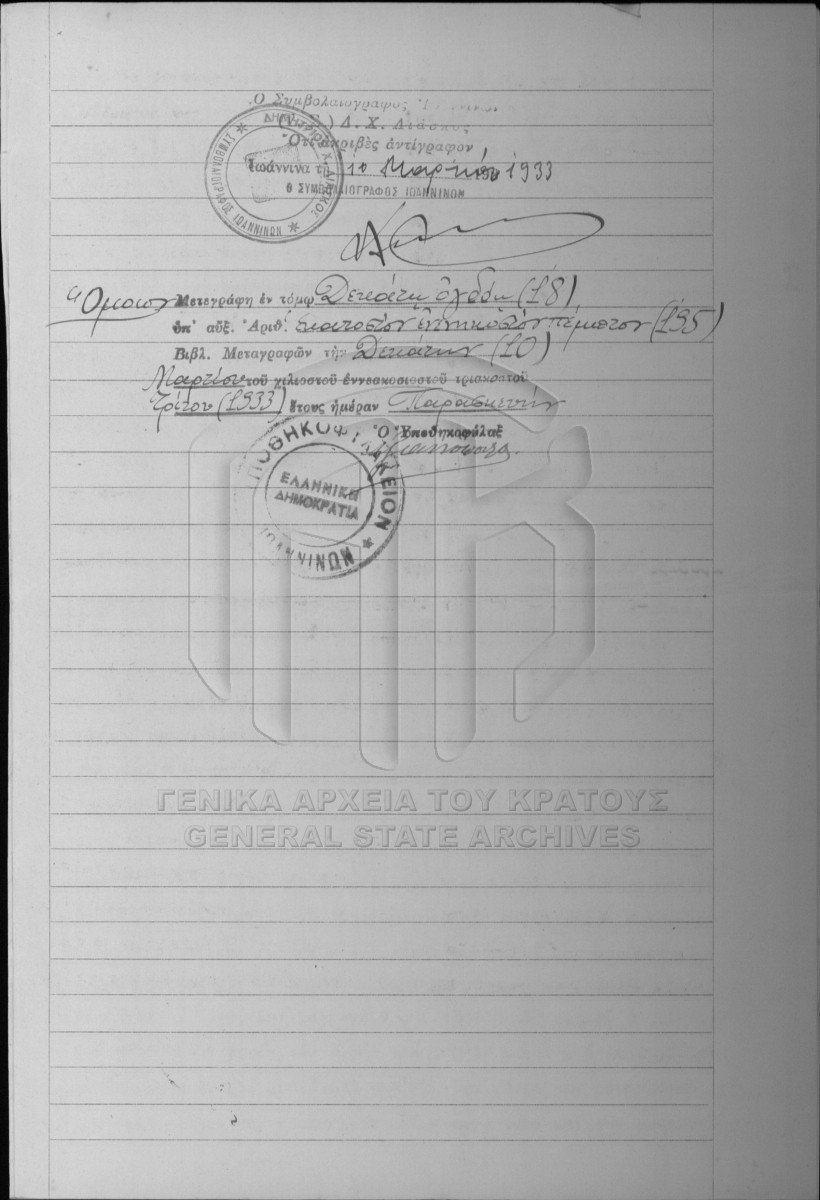 Ὁ Συμβολαιογράφος
Δ. Χ. Διάσκος
Ὅτι ἀκριβὲς ἀντίγραφον
Ἰωάννινα τῇ 10 Μαρτίου 1933
Ο ΣΥΜΒΟΛΑΙΟΓΡΑΦΟΣ ΙΩΑΝΝΙΝΩΝ
ΣΥΜΒΟΛΑΙΟΓΡΑΦΟΣ ΙΩΑΝΝΙΝΩΝ
Μετεγράφη ἐν τόμῳ Δεκάτῳ ὀγδόῳ (18)
ὑπ' αὔξ. Ἀριθ. ἑκατοστὸν ἐνενηκοστὸν πέμπτον (195)
Βιβλ. Μεταγραφῶν τὴν Δεκάτην (10)
Μαρτίου τοῦ χιλιοστοῦ ἐννεακοσιοστοῦ τριακοστοῦ
τρίτου (1933) ἔτους ἡμέραν Παρασκευήν
Ὁ Ὑποθηκοφύλαξ
ΕΛΛΗΝΙΚΗ
ΔΗΜΟΚΡΑΤΙΑ
ΙΩΑΝΝΙΝΩΝ
ΓΕΝΙΚΑ ΑΡΧΕΙΑ ΤΟΥ ΚΡΑΤΟΥΣ
GENERAL STATE ARCHIVES